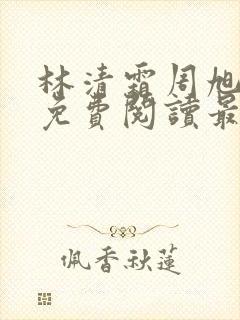 林清霜周旭
免費閱讀最
佩香秋蓮